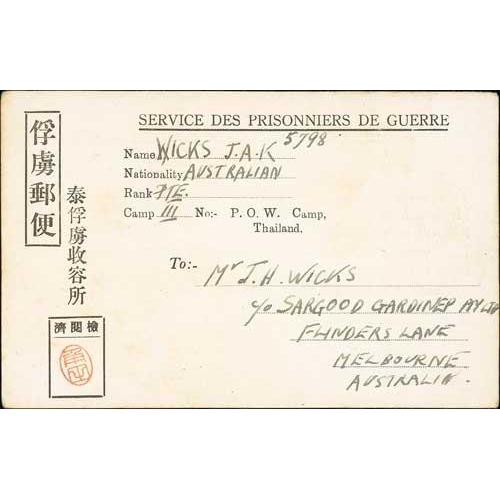 俘虜郵便
泰俘虜收容所
檢閱濟
SERVICE DES PRISONNIERS DE GUERRE
5798
Name WICKS J.A.K
Nationality AUSTRALIAN
Rank PTE.
Camp III No:- P. O. W. Camp,
Thailand.
To:-
Mr J.H. WICKS
c/o SARGOOD GARDINER PTY LTD
FLINDERS LANE
MELBOURNE
AUSTRALIA.